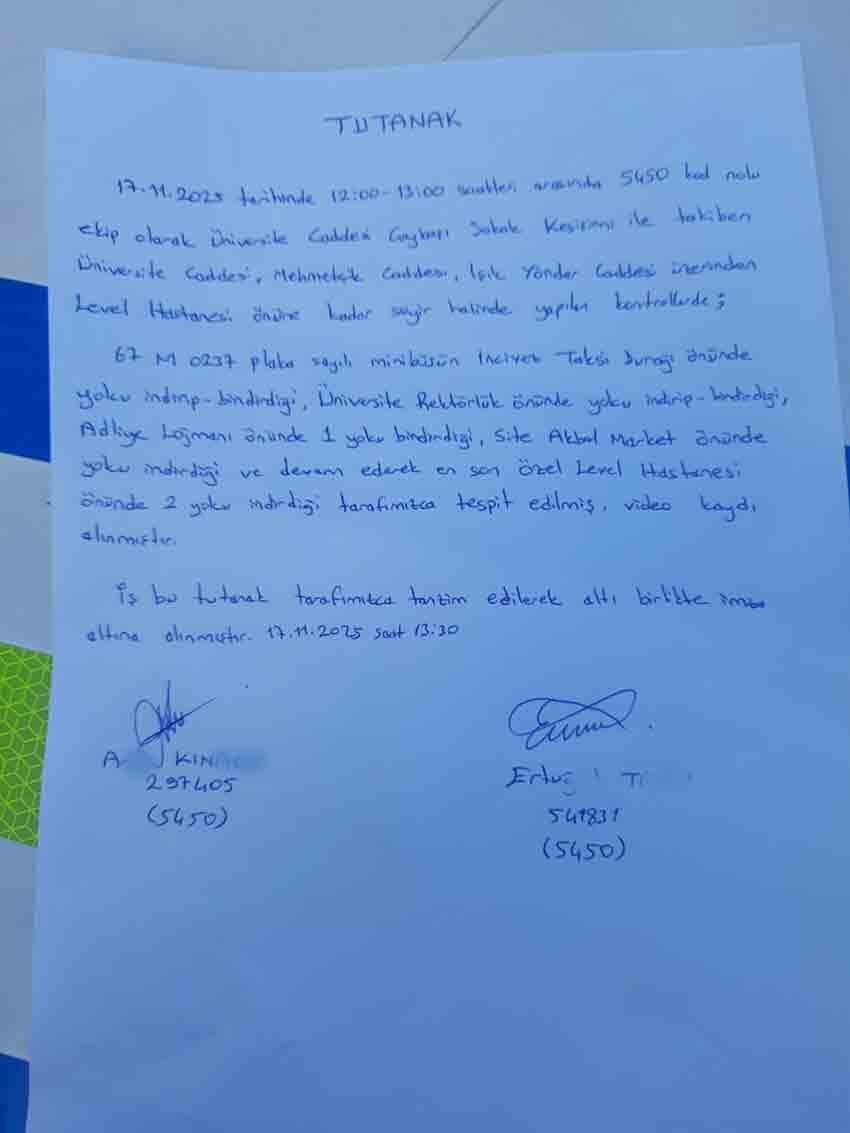 TUTANAK
17.11.2025 tarihinde 12:00-13:00 saatleri arasında 5450 kod nolu
ekip olarak Üniversite Caddesi Caybaşı Sokak Kesişimi ile takiben
Üniversite Caddesi, Mehmetçik Caddesi, Işık Yönder Caddesi üzerinden
Level Hastanesi önüne kadar seyir halinde yapılan kontrollerde;
67 M 0237 plaka sayılı minibüsün İncivez Taksi Durağı önünde
yolcu indirip-bindirdiği, Üniversite Rektörlük önünde yolcu indirip-bindirdiği,
Adliye Lojmanı önünde 1 yolcu bindirdiği, Site Akbal Market önünde
yolcu indirdiği ve devam ederek en son Özel Level Hastanesi
önünde 2 yolcu indirdiği tarafımızca tespit edilmiş, video kaydı
alınmıştır.
İş bu tutanak tarafımızca tanzim edilerek altı birlikte imza
altına alınmıştır. 17.11.2025 saat 13:30
A KIN
297405
(5450)
Ertuğ T
541831
(5450)